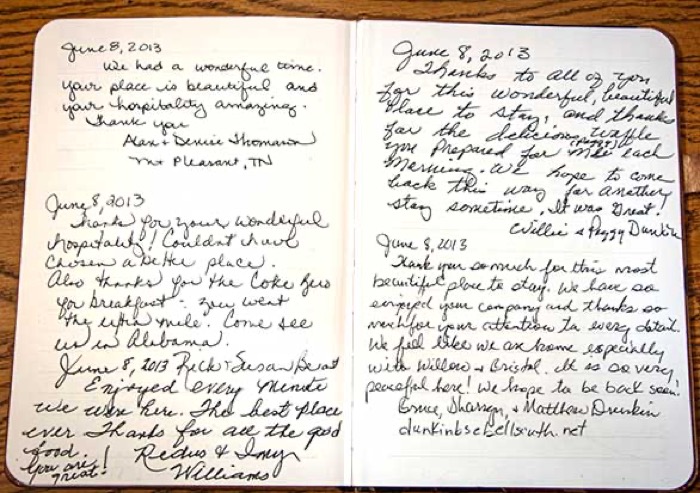 June 8, 2013
We had a wonderful time.
your place is beautiful and
your hospitality amazing.
Thank you
Alan + Denise Thomason
Mt Pleasant, TN
June 8, 2013
Thanks for your wonderful
hospitality! Couldn't have
chosen a better place.
Also thanks for the Coke Zero
for breakfast - you went
the extra mile. Come see
us in Alabama.
June 8, 2013 Rick + Susan
Enjoyed every minute
we were here. The best place
ever Thanks for all the good
food.
You are great!
Redus & Imy
Williams
June 8, 2013
Thanks to all of you
for this wonderful, beautiful
place to stay, and thanks
for the delicious waffle
you prepared for me (Peggy) each
morning. We hope to come
back this way for another
stay sometime. It was Great!
Willie & Peggy Dunkin
June 8, 2013
Thank you so much for this most
beautiful place to stay. We have so
enjoyed your company and thanks so
much for your attention to every detail.
We feel like we are home especially
with Willow & Bristol. It is so very
peaceful here! We hope to be back soon!
Bruce, Sharon, & Matthew Dunkin